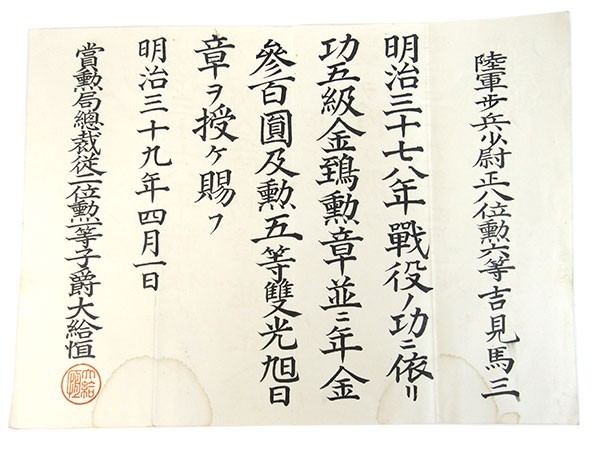 陸軍步兵少尉正八位勲六等吉見馬三
明治三十七八年戰役ノ功ニ依リ
功五級金鵄勲章並ニ年金
參百圓及勲五等雙光旭日
章ヲ授ケ賜フ
明治三十九年四月一日
賞勲局總裁從二位勲一等子爵大給恒
大給恒